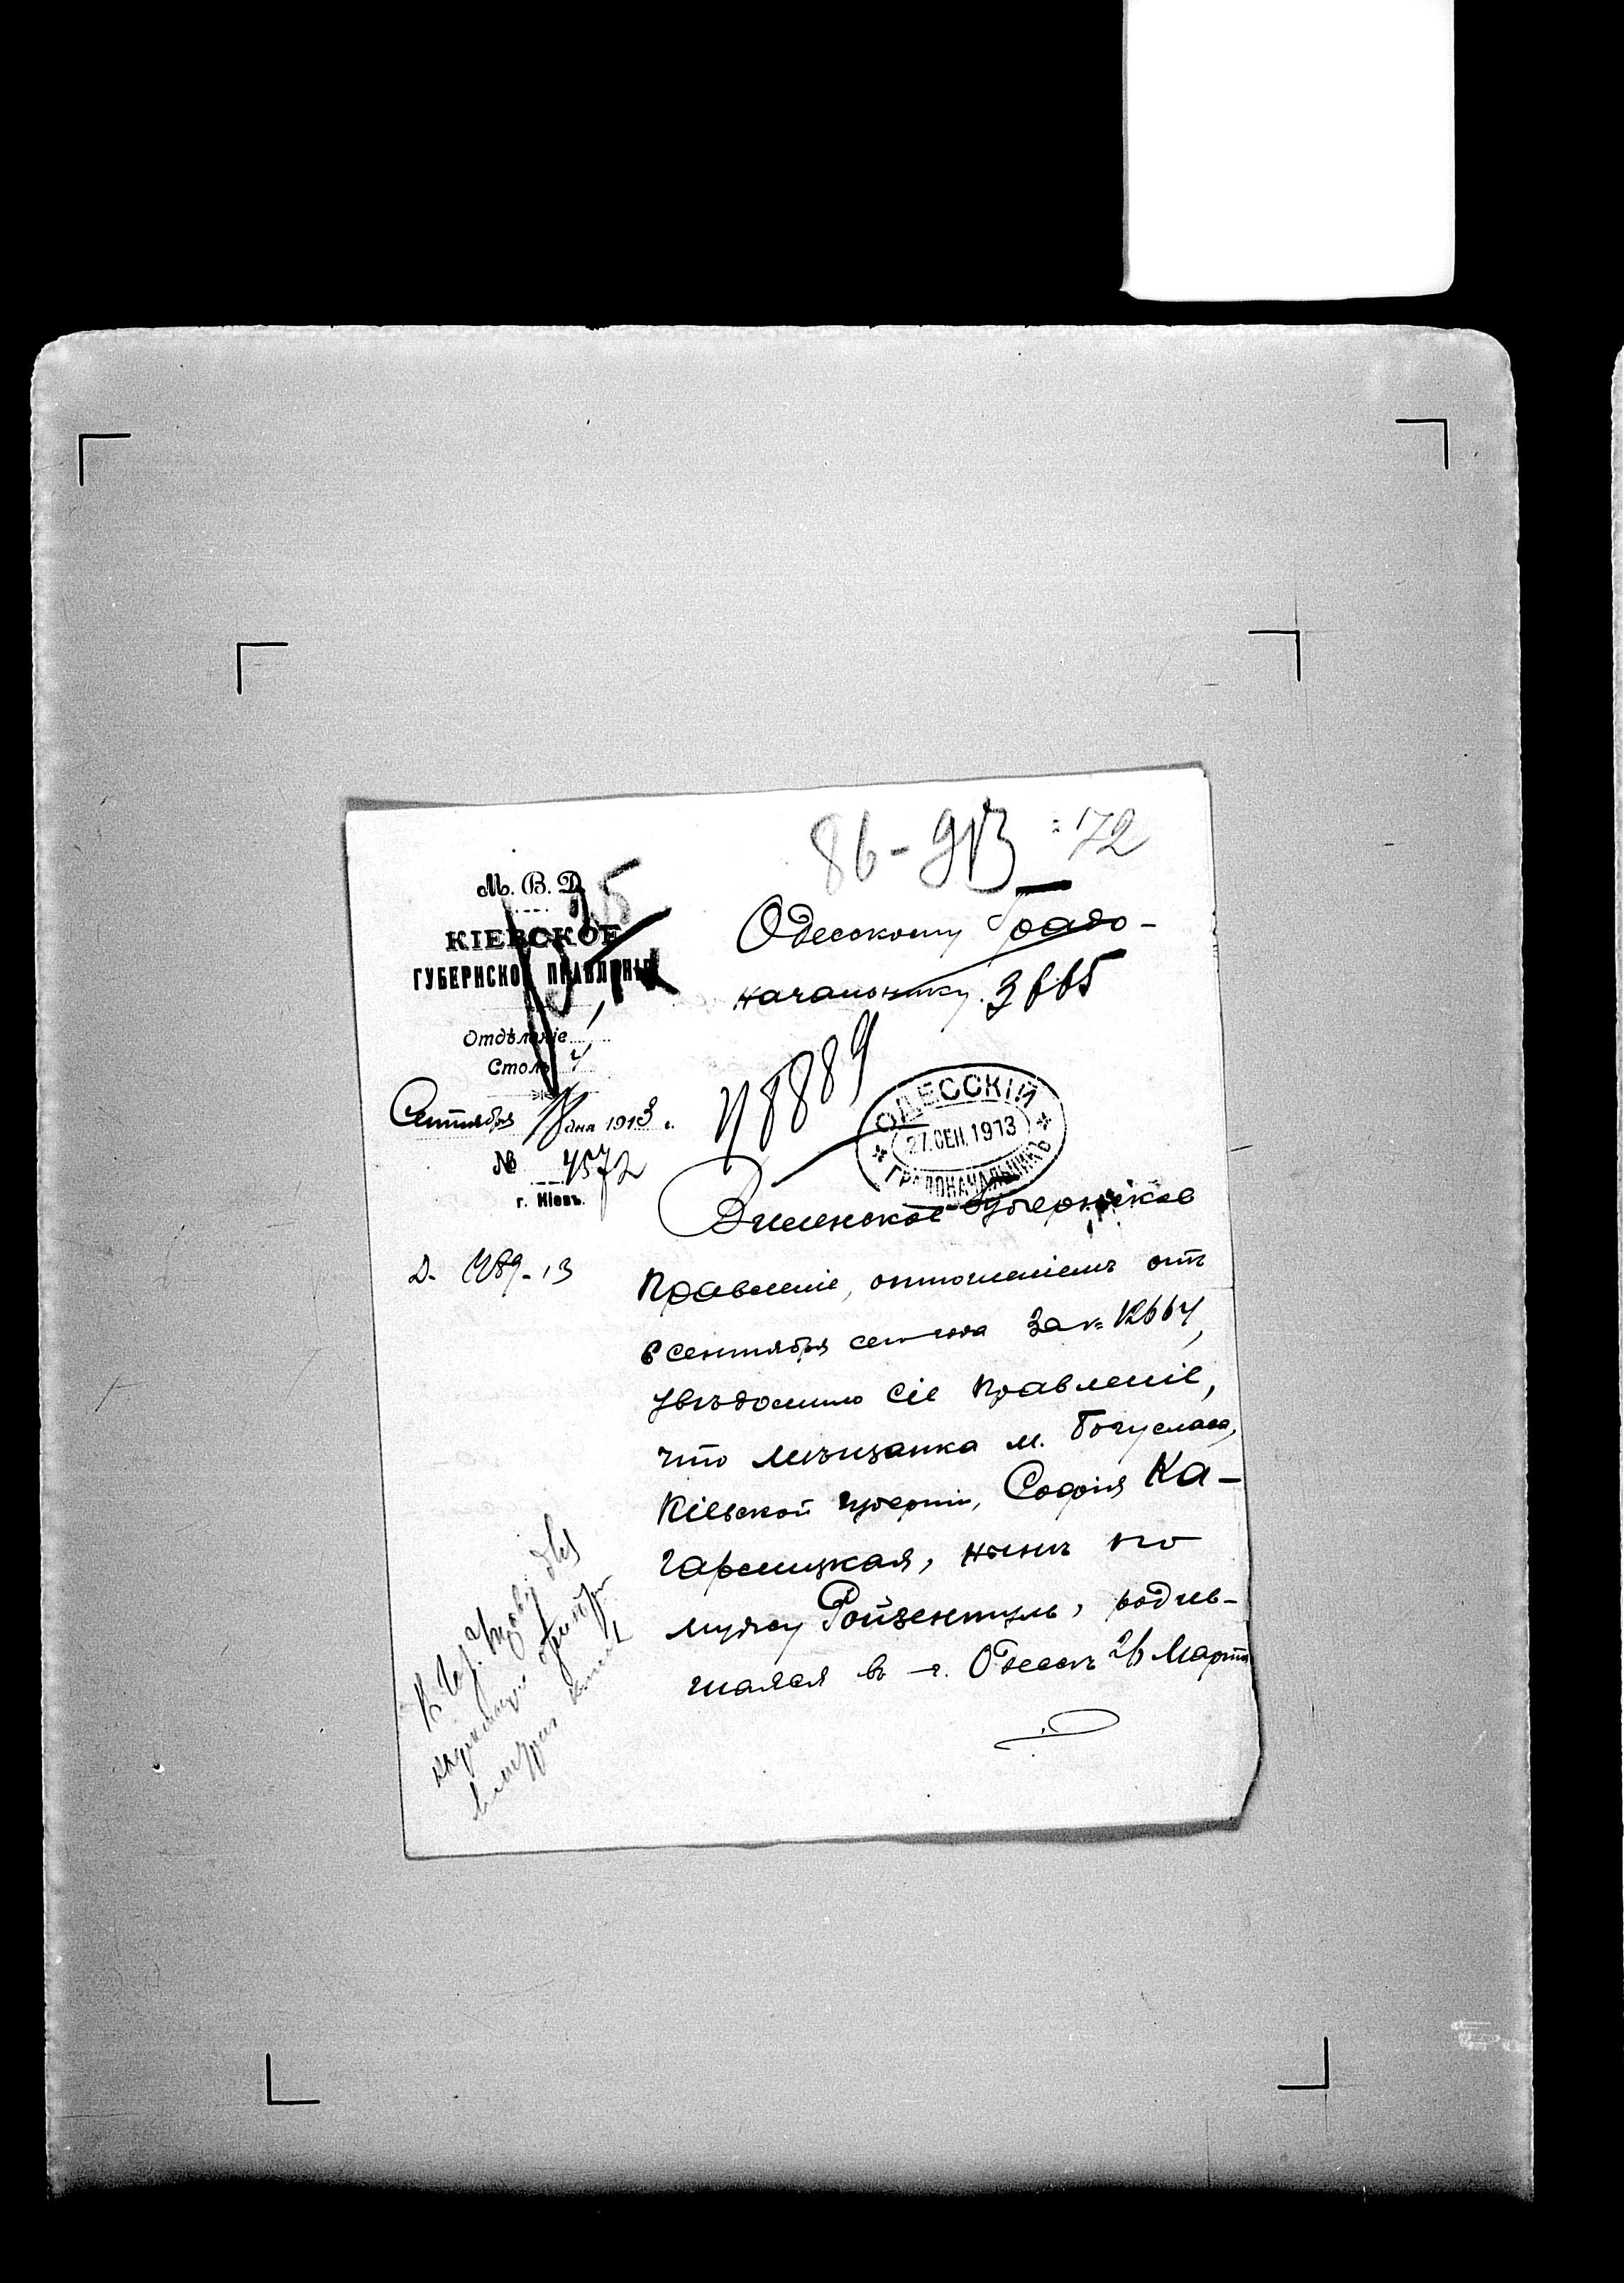 86-913 = 72
М. В. Д.
КІЕВСКОЕ
ГУБЕРНСКОЕ ПРАВЛЕНІЕ
Отдѣленіе
Столъ 4
Сентября 18 дня 1913 г.
№ 4572
г. Кіевъ.
Д. 1789-13
Одесскому Градо-
начальнику.
ОДЕССКІЙ
27.СЕН.1913
ГРАДОНАЧАЛЬНИКЪ
Виленское Губернское
Правленіе, отношеніемъ отъ
6 сентября сего года за № 12664,
увѣдомило сіе Правленіе,
что мѣщанка м. Богуслава,
Кіевской губерніи, Софія Ка-
гарлицкая, нынѣ по
мужу Ройзентуль, родив-
шаяся въ г. Одессѣ 26 Марта